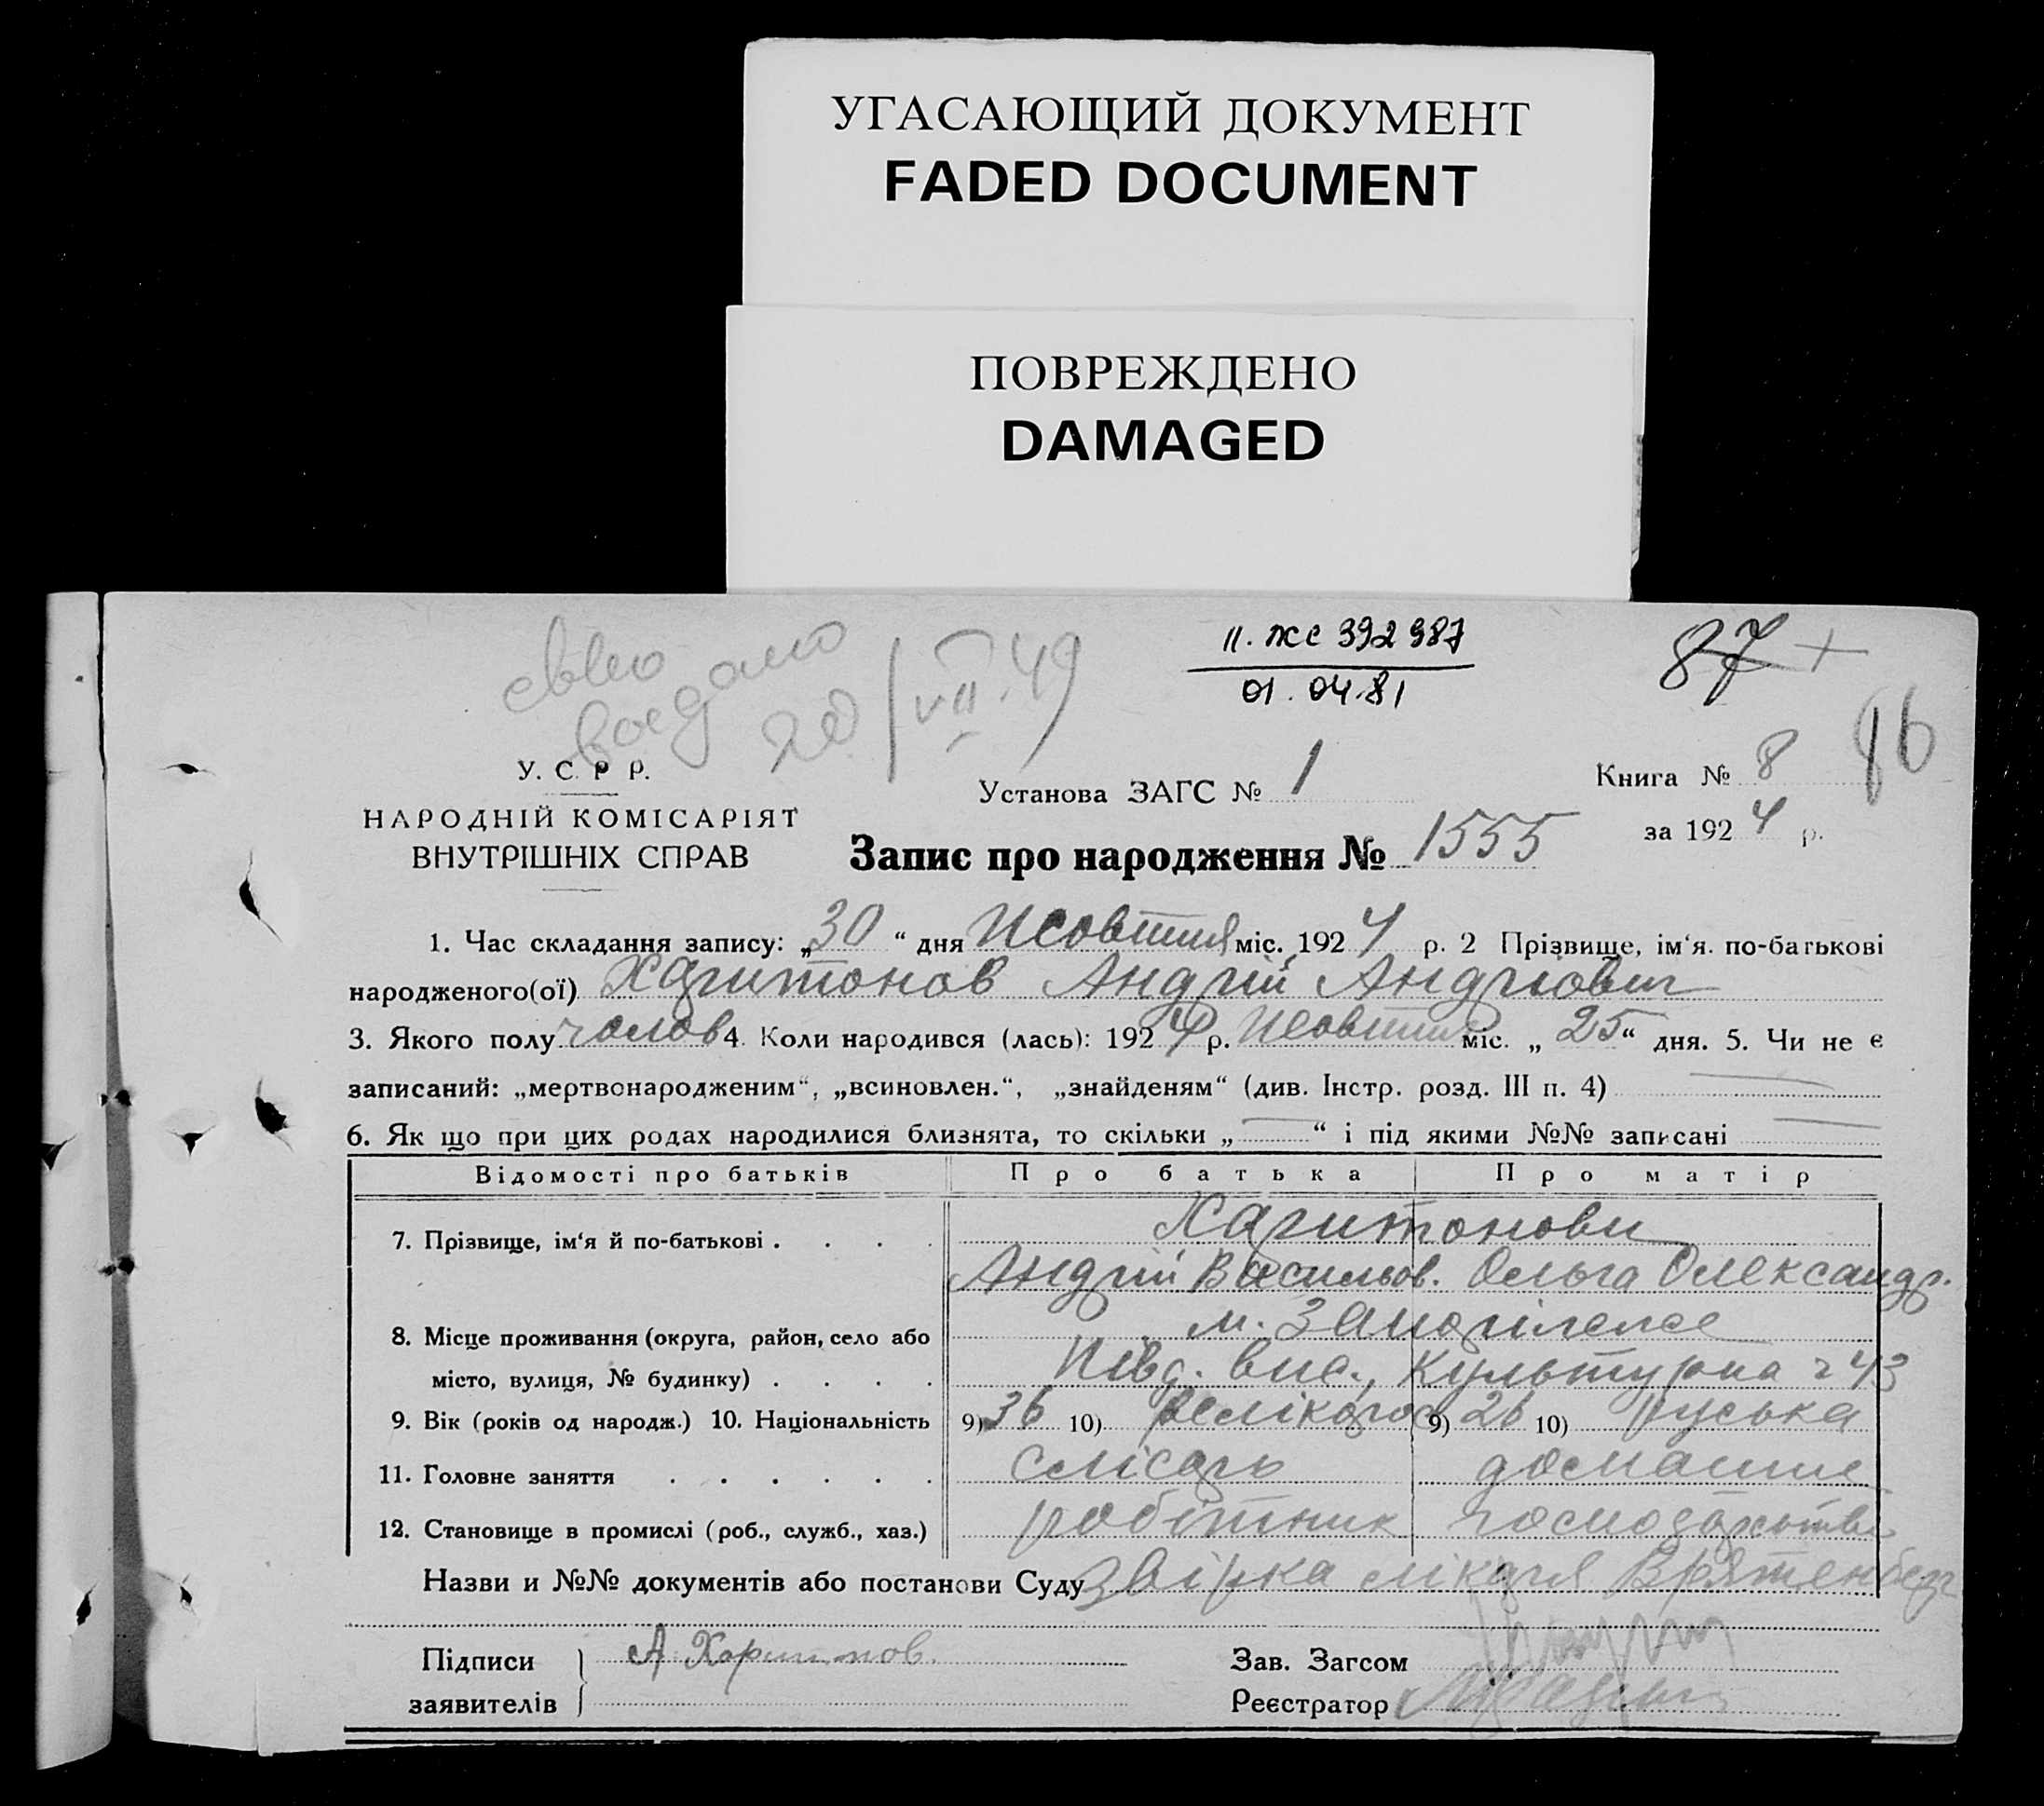 УГАСАЮЩИЙ ДОКУМЕНТ
FADED DOCUMENT
ПОВРЕЖДЕНО
DAMAGED
II. ЖС 392987
01.04.81
87 +
86
20/VII.49
У. С. Р. Р.
НАРОДНІЙ КОМІСАРІЯТ
ВНУТРІШНІХ СПРАВ
Установа ЗАГС № 1
Книга № 8
за 1924 р.
Запис про народження № 1555
1. Час складання запису: „30“ дня Жовтня міс. 1924 р. 2 Прізвище, ім‘я. по-батькові
народженого(ої) Харитонов Андрій Андрійович
3. Якого полу чолов 4. Коли народився (лась): 1924 р. Жовтня міс. „25“ дня. 5. Чи не є
записаний: „мертвонародженим“, „всиновлен.“, „знайденям“ (див. Інстр. розд. III п. 4)
6. Як що при цих родах народилися близнята, то скільки „—“ і під якими №№ записані —
Відомості про батьків Про батька Про матір
7. Прізвище, ім‘я й по-батькові . . . . Харитонови
Андрій Васильов. Ольга Олександр.
8. Місце проживання (округа, район, село або м. Запоріжжє
місто, вулиця, № будинку) . . . . Півд. вис., Культурна ч 43
9. Вік (років од народж.) 10. Національність 9) 36 10) великорос 9) 26 10) руська
11. Головне заняття . . . . . . слюсарь домашнє
12. Становище в промислі (роб., служб., хаз.) робітник господарство
Назви и №№ документів або постанови Суду Звірка лікаря
Підписи
заявителів
А Харитонов.
Зав. Загсом
Реєстратор